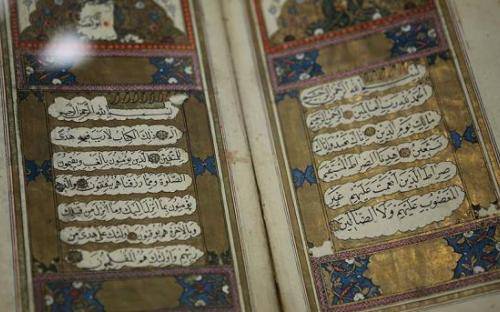 بسم الله الرحمن الرحيم
الحمد لله رب العالمين
ملك يوم الدين اياك نعبد واياك
نستعين اهدنا الصراط المستقيم
صراط الذين انعمت عليهم غير
المغضوب عليهم ولا الضالين
بسم الله الرحمن الرحيم
الم ذلك الكتاب لا ريب فيه هدى
للمتقين الذين يؤمنون بالغيب ويقيمون
الصلوة ومما رزقناهم ينفقون والذين
يؤمنون بما انزل اليك وما انزل من قبلك
وبالاخرة هم يوقنون اولئك على هدى من
ربهم واولئك هم المفلحون